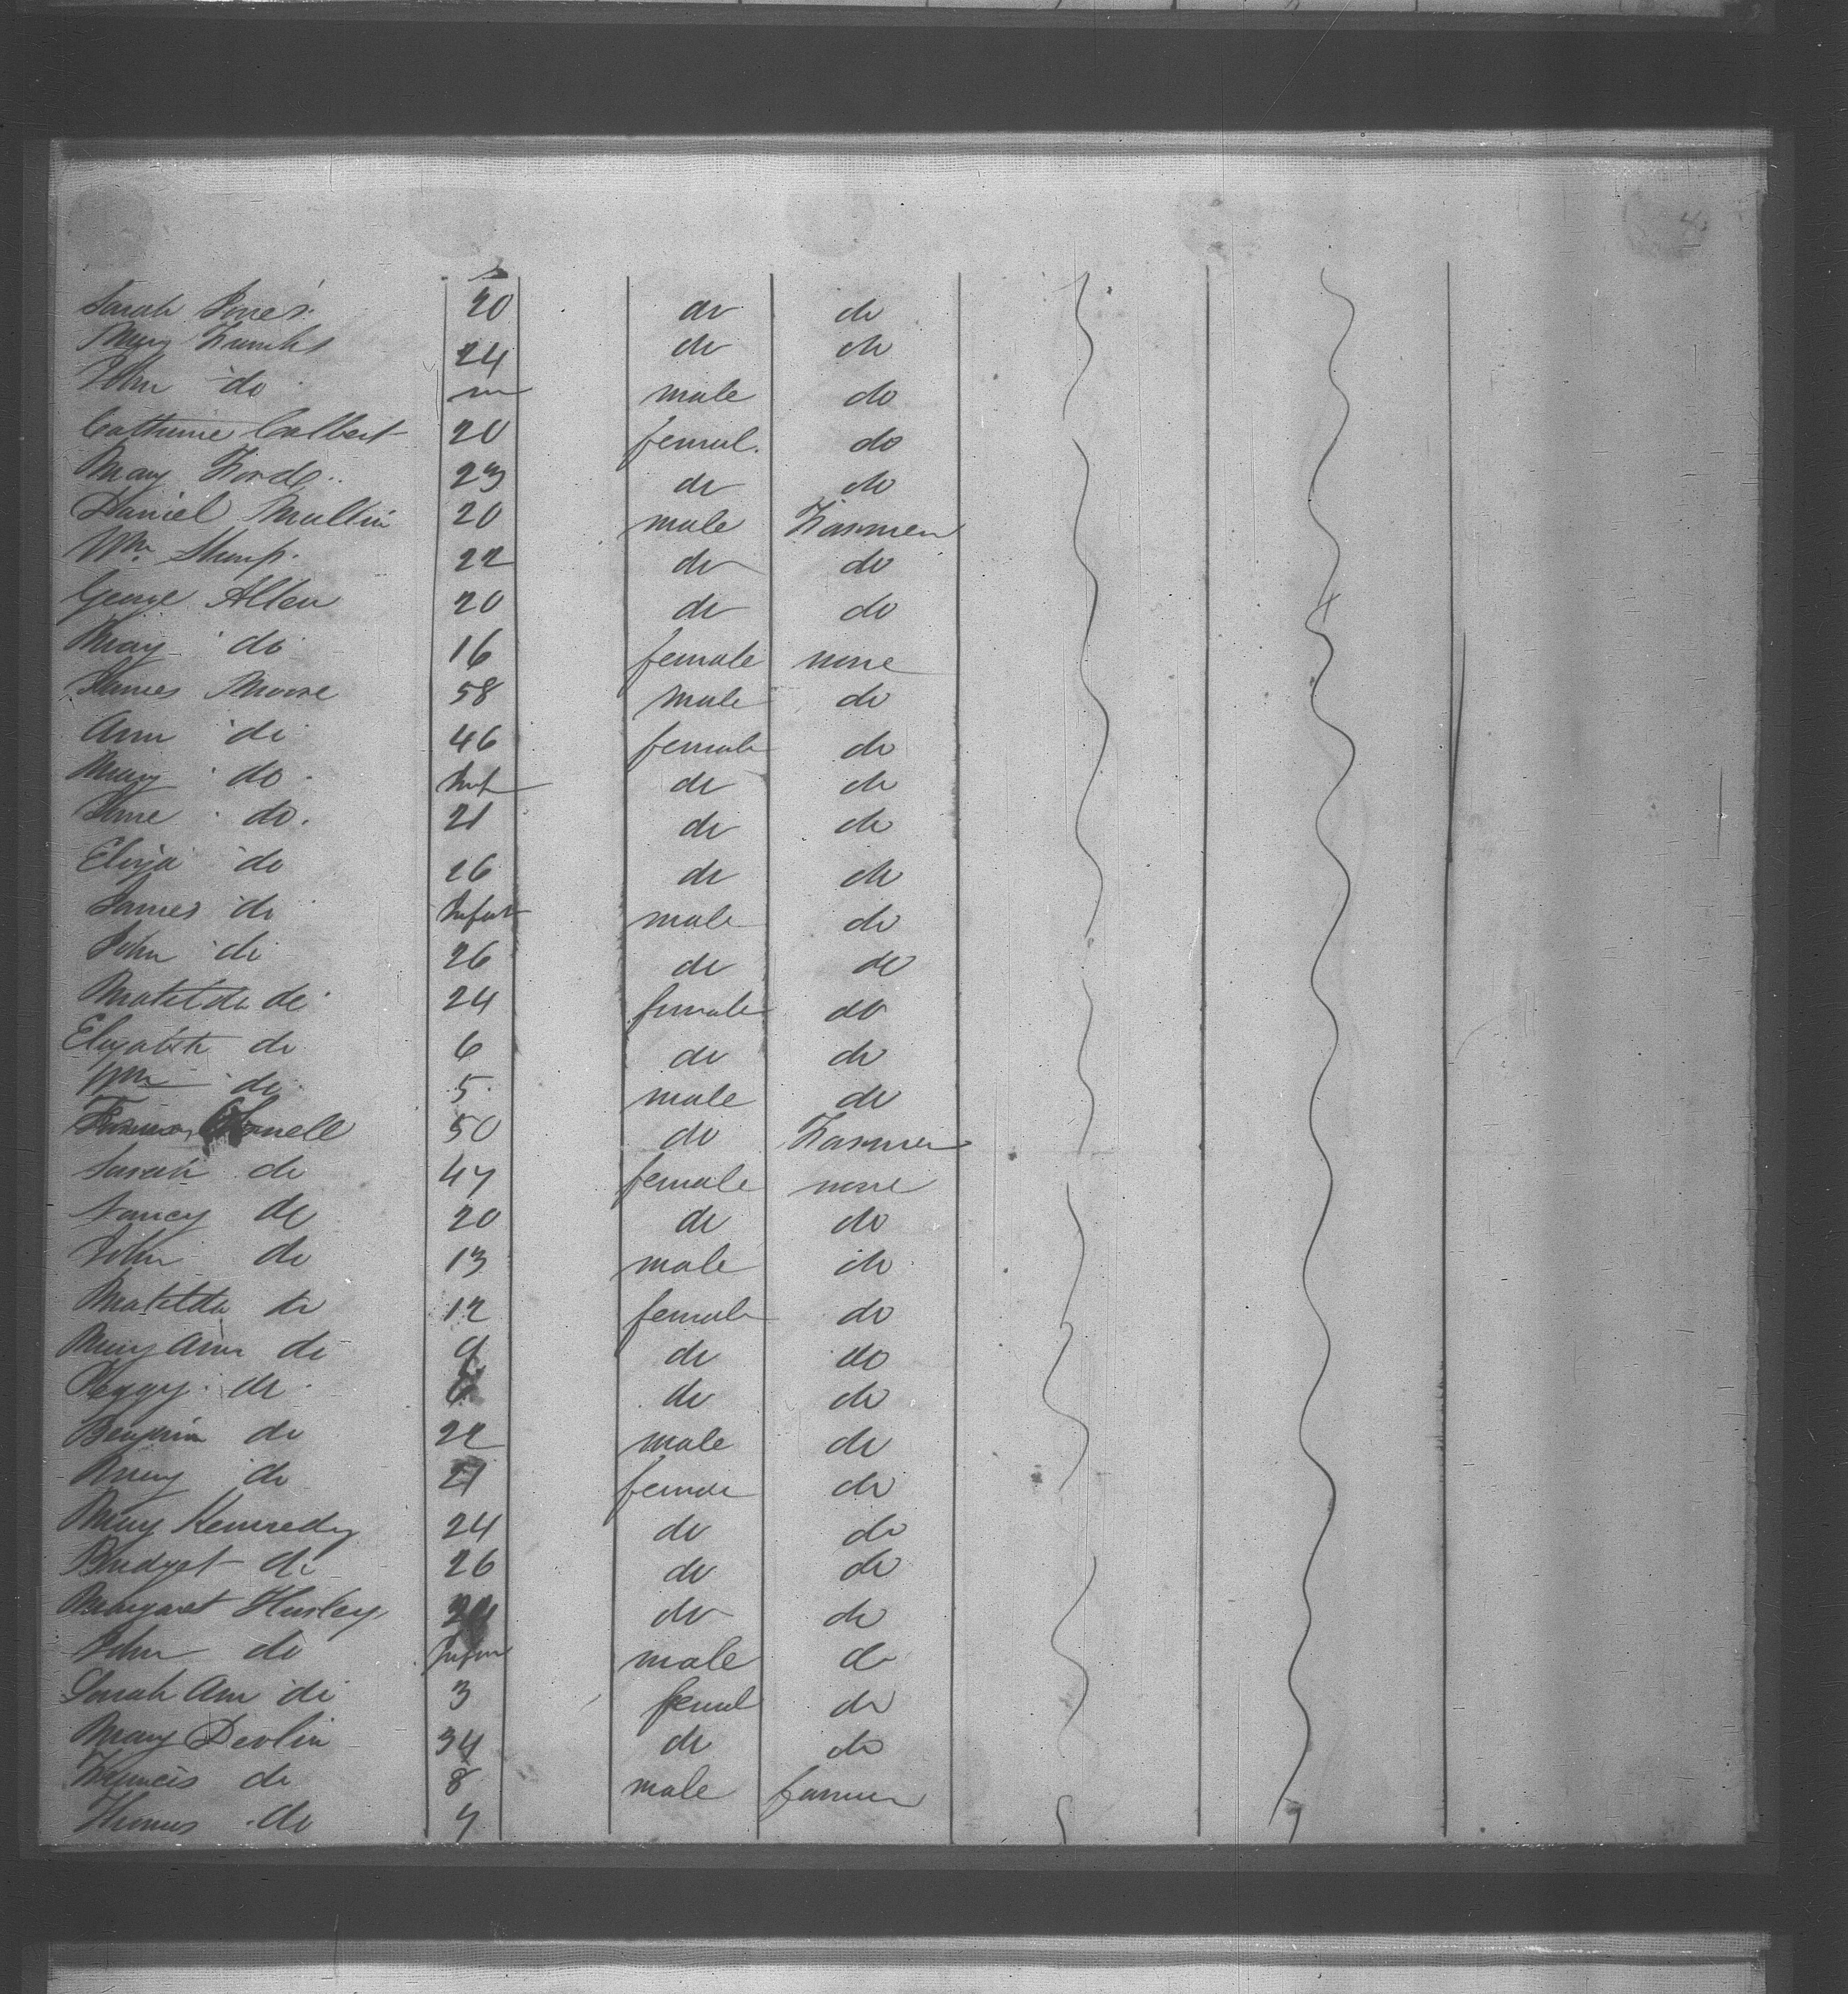 4
Sarah Jones 20 do do
Mary Franks 24 do do
John do male do
Catharine Colbert 20 femal. do
Mary Forde 23 do do
Daniel Mullin 20 male Farmer
Wm Sharp 22 do do
George Allen 20 do do
Mary do 16 female none
James Moore 58 male do
Ann do 46 female do
Mary do Inft do do
Jane do. 21 do do
Eliza do 26 do do
James do Infant male do
John do 26 do do
Matilda do 24 female do
Elizabeth do 6 do do
Wm do 5 male do
50 do Farmer
Sarah do 47 female none
Nancy do 20 do do
John do 13 male do
Matilda do 12 female do
Mary Ann do 9 do do
Peggy do 6 do do
Benjamin do 22 male do
Mary do 21 female do
Mary Kennedy 24 do do
Bridget do 26 do do
Margaret Hurley do do
John do Infan male do
Sarah Ann do 3 femal do
Mary Devlin 34 do do
Francis do 8 male farmer
Thomas do 4